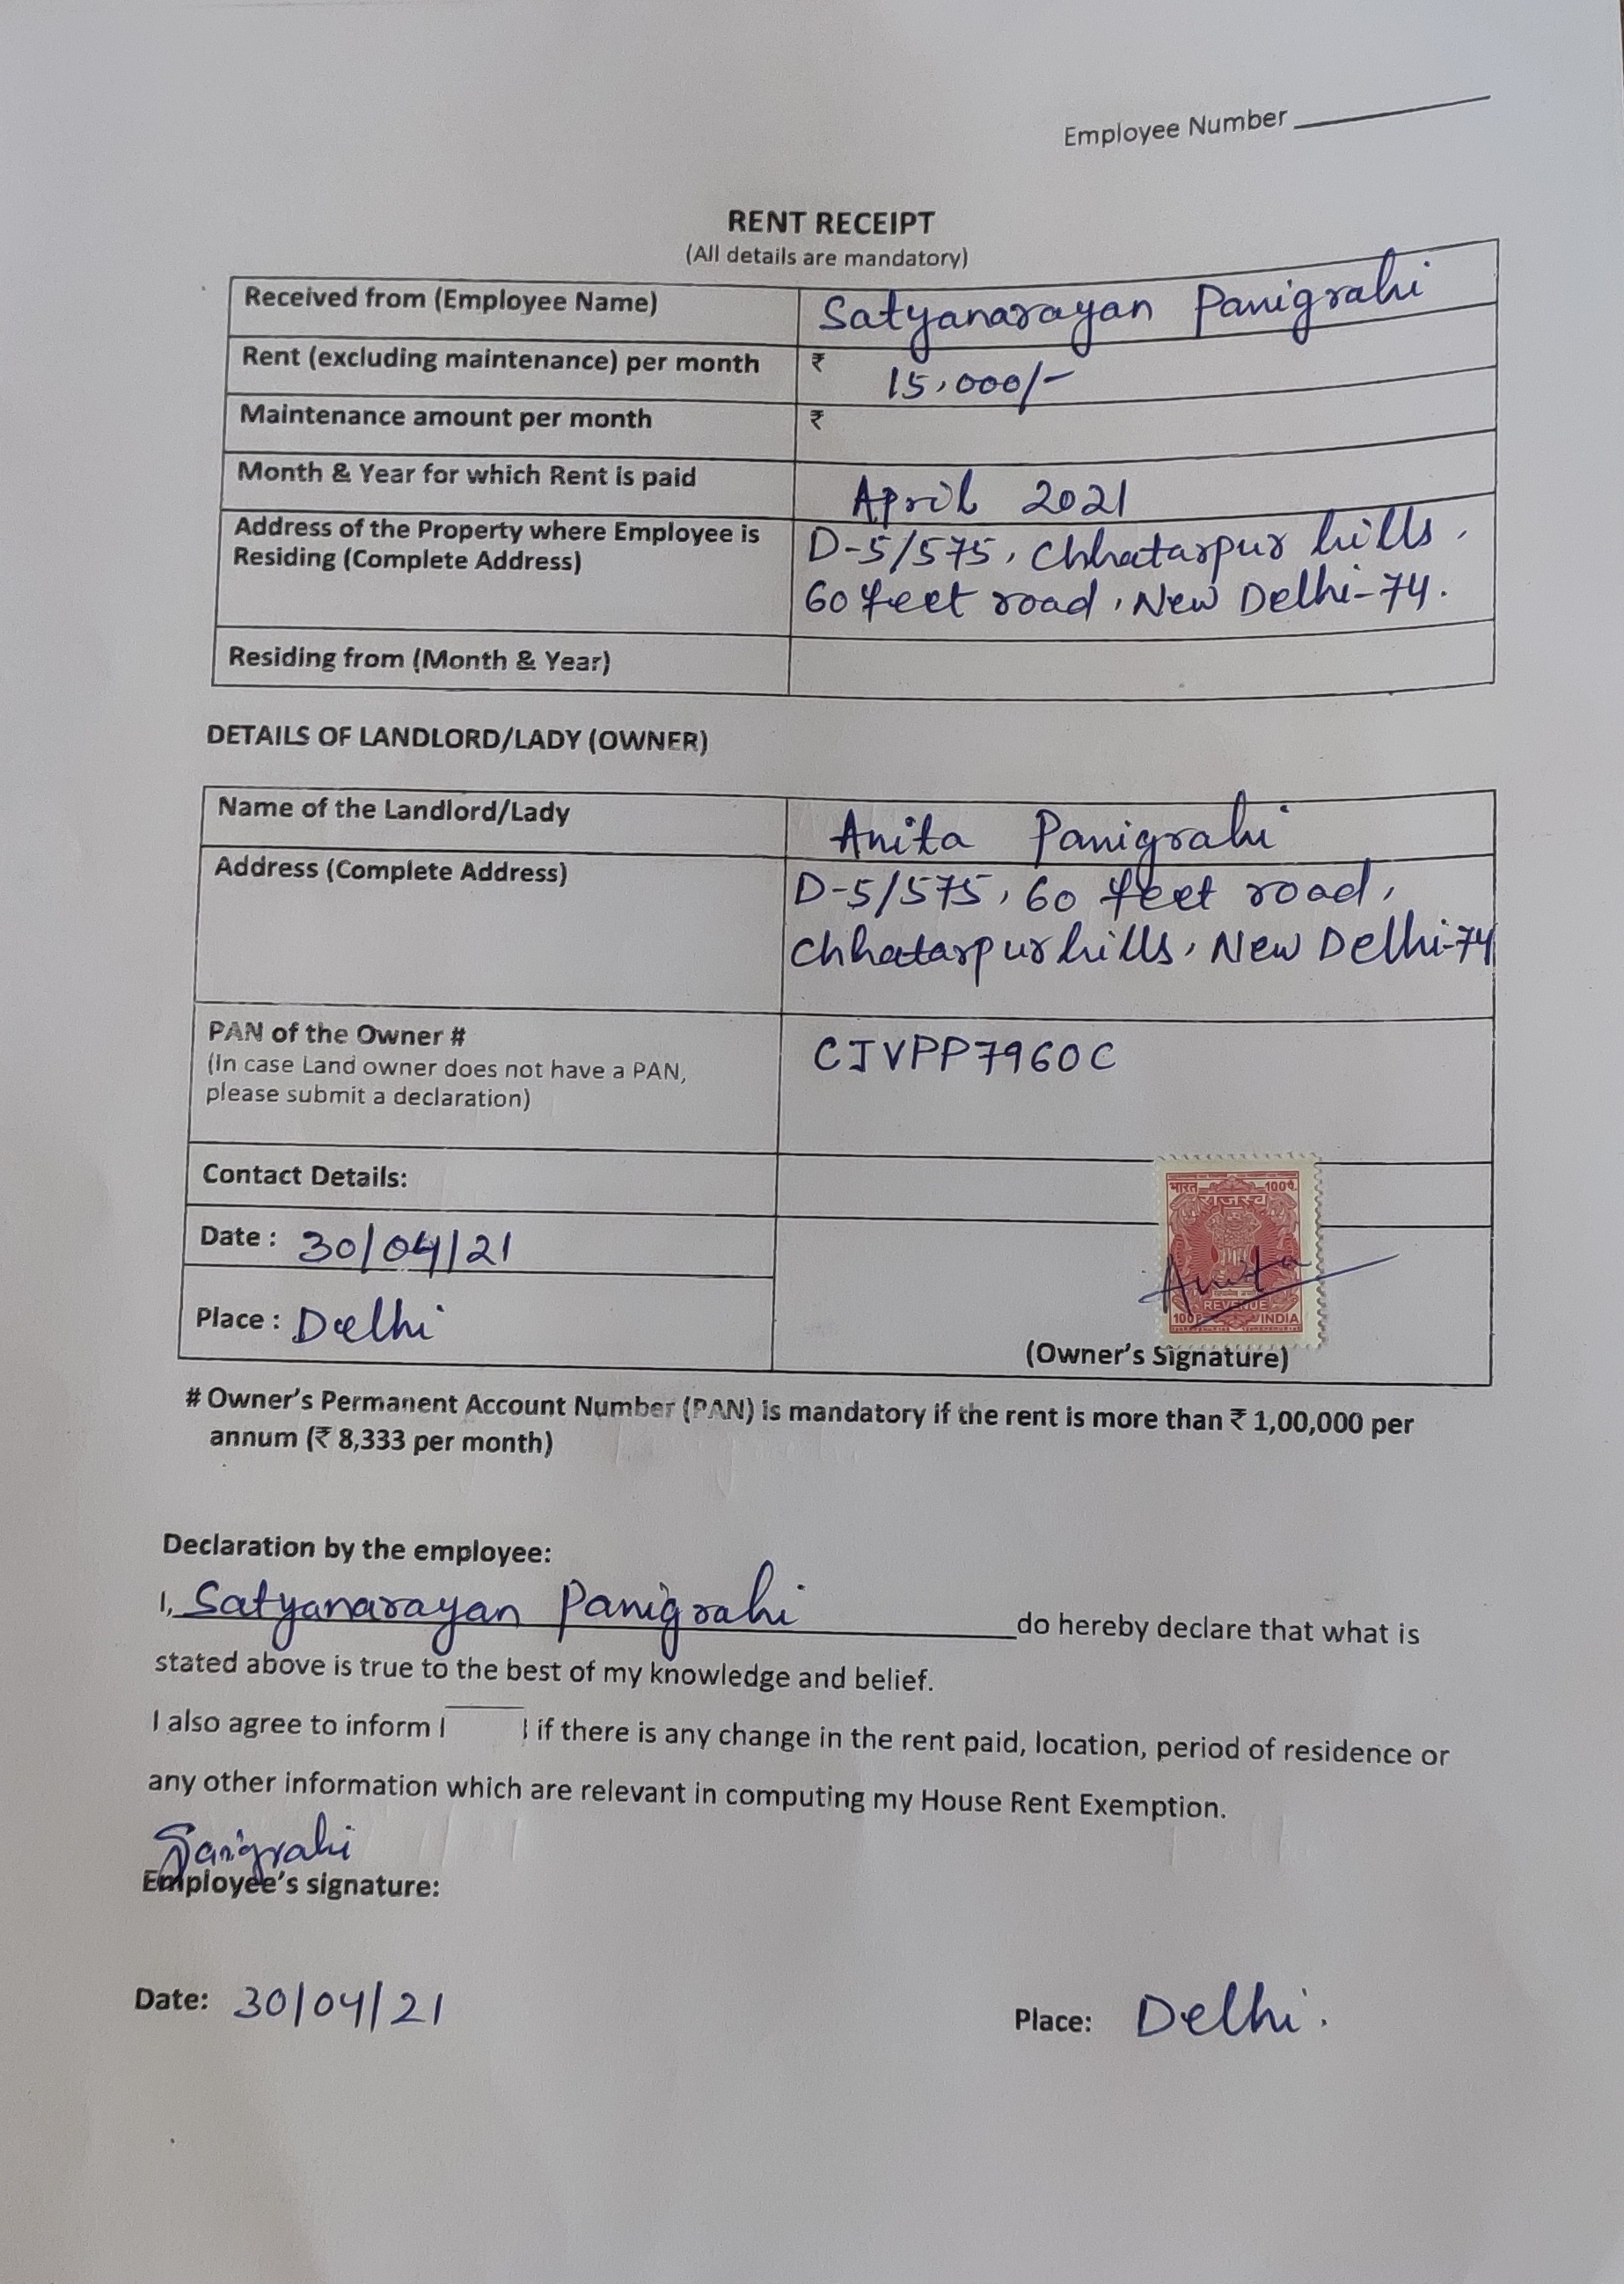 Employee Number
RENT RECEIPT
(All details are mandatory)
Received from (Employee Name) Satyanarayan Panigrahi
Rent (excluding maintenance) per month ₹ 15,000/-
Maintenance amount per month ₹
Month & Year for which Rent is paid April 2021
Address of the Property where Employee is D-5/575, Chhatarpur hills,
Residing (Complete Address) 60 feet road, New Delhi-74.
Residing from (Month & Year)
DETAILS OF LANDLORD/LADY (OWNER)
Name of the Landlord/Lady Anita Panigrahi
Address (Complete Address) D-5/575, 60 feet road,
Chhatarpur hills, New Delhi-74
PAN of the Owner # CJVPP7960C
(In case Land owner does not have a PAN,
please submit a declaration)
Contact Details:
भारत 100पै.
राजस्व
Date : 30/04/21
Anita
REVENUE
100P INDIA
Place : Delhi
(Owner's Signature)
# Owner's Permanent Account Number (PAN) is mandatory if the rent is more than ₹ 1,00,000 per
annum (₹ 8,333 per month)
Declaration by the employee:
I, Satyanarayan Panigrahi do hereby declare that what is
stated above is true to the best of my knowledge and belief.
I also agree to inform if there is any change in the rent paid, location, period of residence or
any other information which are relevant in computing my House Rent Exemption.
Panigrahi
Employee's signature:
Date: 30/04/21 Place: Delhi.